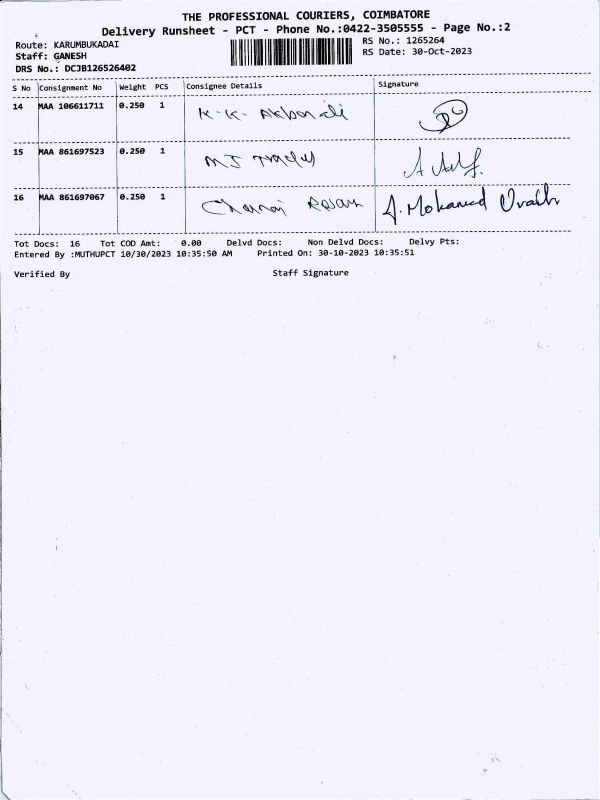 THE PROFESSIONAL COURIERS, COIMBATORE
Delivery Runsheet - PCT - Phone No.:0422-3505555 - Page No.:2
Route: KARUMBUKADAI RS No.: 1265264
Staff: GANESH RS Date: 30-Oct-2023
DRS No.: DCJB126526402
S No Consignment No Weight PCS Consignee Details Signature
14 MAA 106611711 0.250 1 K.K. Akbar ali
15 MAA 861697523 0.250 1 MJ Traders
16 MAA 861697067 0.250 1 Chennai A. Mohamed
Tot Docs: 16 Tot COD Amt: 0.00 Delvd Docs: Non Delvd Docs: Delvy Pts:
Entered By :MUTHUPCT 10/30/2023 10:35:50 AM Printed On: 30-10-2023 10:35:51
Verified By Staff Signature